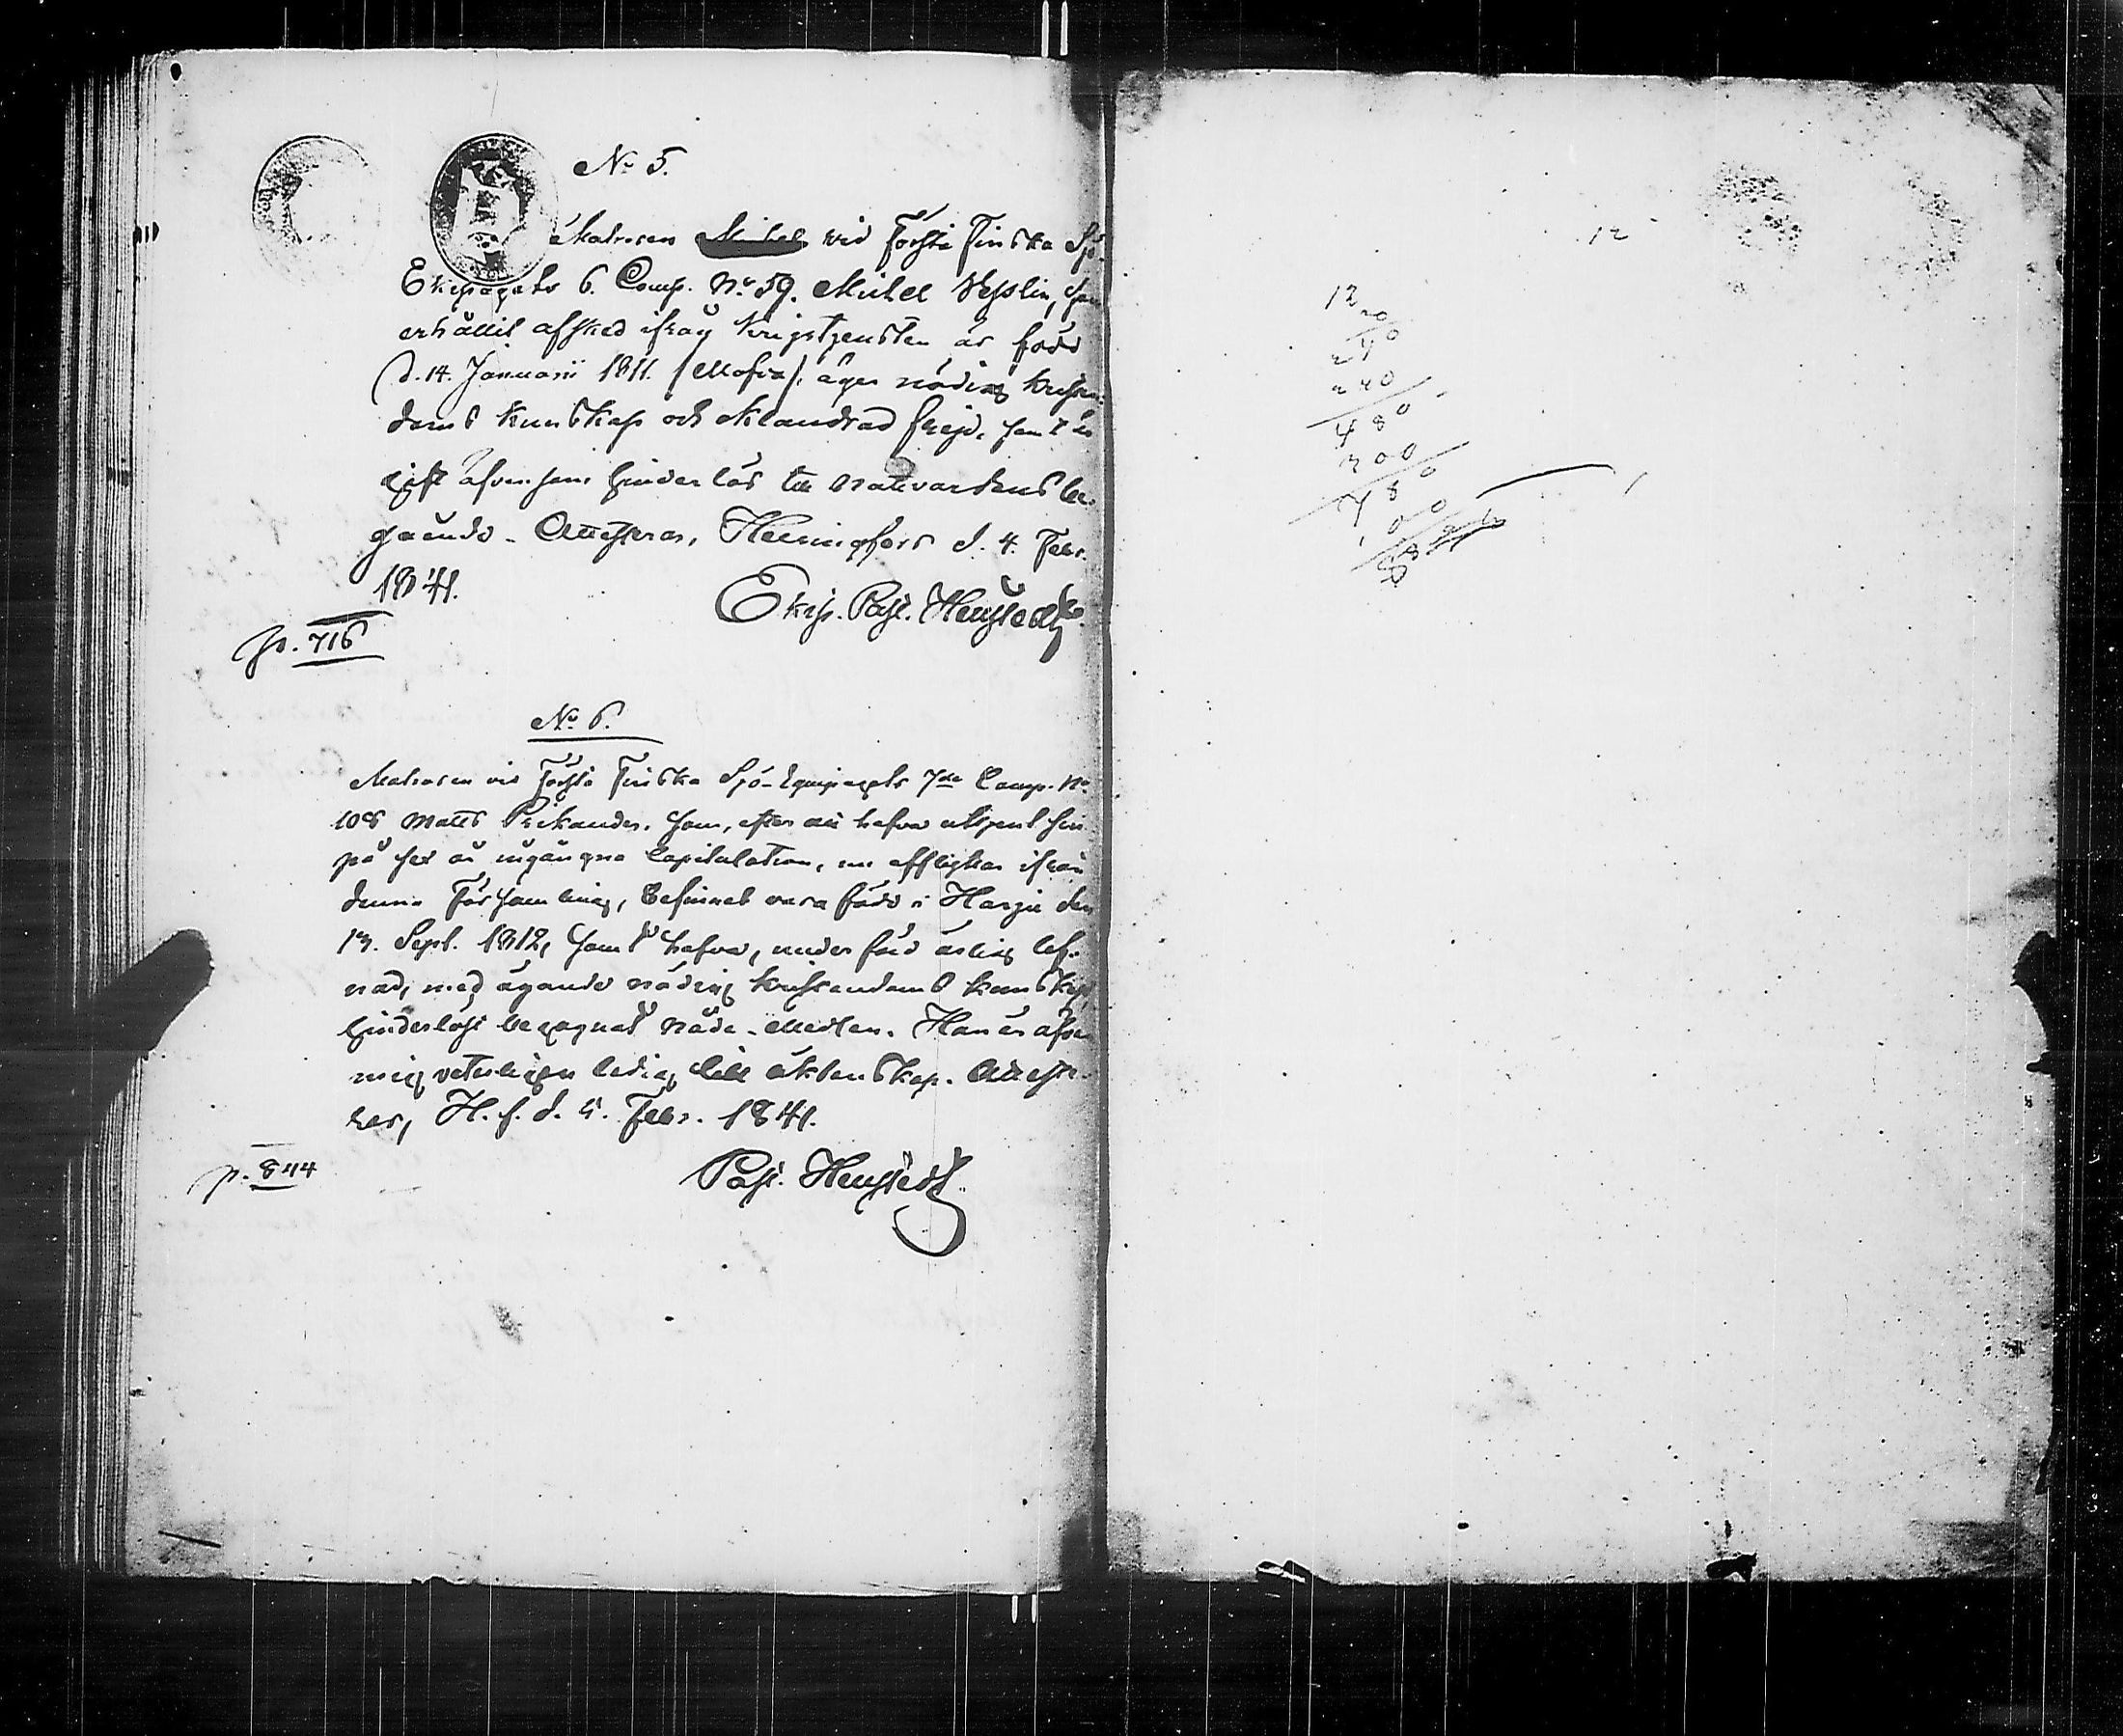 No 5.
Matrosen vid Första Finska Sjö-
Ekipagets 6. Comp. No 59. Michel Vesslin, som
erhållit afsked ifrån krigstjensten är född
d. 14. Januarii 1811. äger nödig kristen-
doms kunskap och oklandrad frejd, samt är
gift äfvensom hinderlös till Nattvardens be-
gående. Attesteras, Helsingfors d. 4. Febr.
1841.
Ekip. Past. Henstedt
p. 716
No 6.
Matrosen vid Första Finska Sjö-Equipagets 7de Comp. No
108 Matts Prikander, som, efter att hafva uttjent sin
på sex år ingångna Capitulation, nu afflyttar ifrån
denna Församling, befinnes vara född i Harju den
13. Sept. 1812, samt hafva, under förd ärlig lef-
nad, med ägande nödig kristendoms kunskap,
hinderlöst begagnat Nåde-Medlen. Han är äfven
mig veterligen ledig till äktenskap. Atteste-
ras, H.f. d. 5. Febr. 1841.
Past. Henstedt
p. 844
12
12
24
240
480
300
780